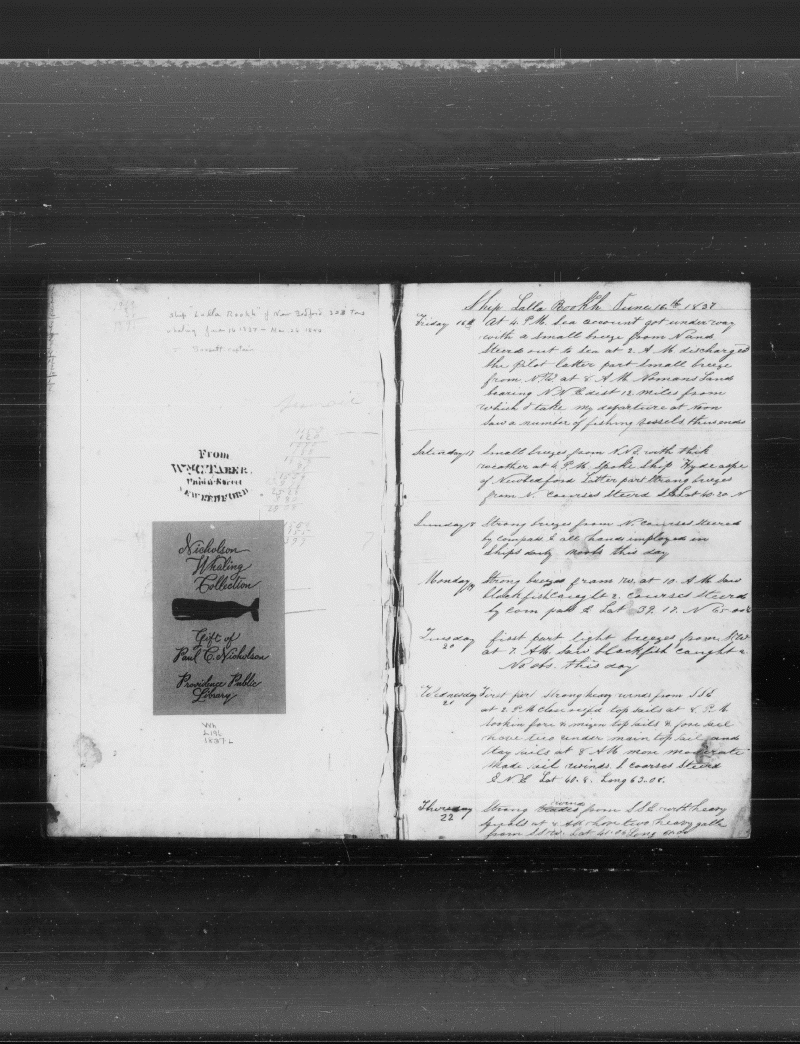 Ship "Lalla Rookh" of New Bedford 323 Tons
whaling June 16 1837 – Mar 26
captain
From
WM C. TABER,
Union Street
NEW BEDFORD
Nicholson
Whaling
Collection
Gift of
Paul C. Nicholson
Providence Public
Library
Wh
L19L
1837L
Ship Lalla Rookh June 16th 1837
Friday 16th At 4 P.M. Sea account got under way
with a small breeze from N and
Steerd out to Sea at 2 A M discharged
the pilot latter part small breeze
from N.W. at 8 A M Nomans Land
bearing N N E dist 12 miles from
which I take my departure at Noon
Saw a number of fishing vessels thus ends
Saturday 17 Small breezes from N.N.E. with thick
weather at 4 P.M. Spoke Ship Hydeaspe
of Newbedford Latter part Strong breezes
from N. Courses Steerd Lat 40.20 N
Sunday 18 Strong breezes from N. Courses Steered
by compass E all hands employed in
Ships duty no obs this day
Monday 19 Strong breezes from NW. at 10. A M Saw
blackfish caught 2. Courses Steerd
by compass E Lat 39.17. N
Tuesday 20 first part light breezes from
at 7. A M Saw blackfish caught 2
No obs. this day
Wednesday 21 First part strong heavy winds from SSE
at 2 P.M close reefd top sails at 8. P. M
took in fore & mizen top sails & fore sail
hove two under main top sail and
stay sails at 8 A M more moderate
made sail winds. S coarses Steerd
E.N.E. Lat 40.8. Long 63.08.
Thursday 22 Strong winds from S.S.E. with heavy
squals at 4 AM hove two heavy gale
from Lat Long